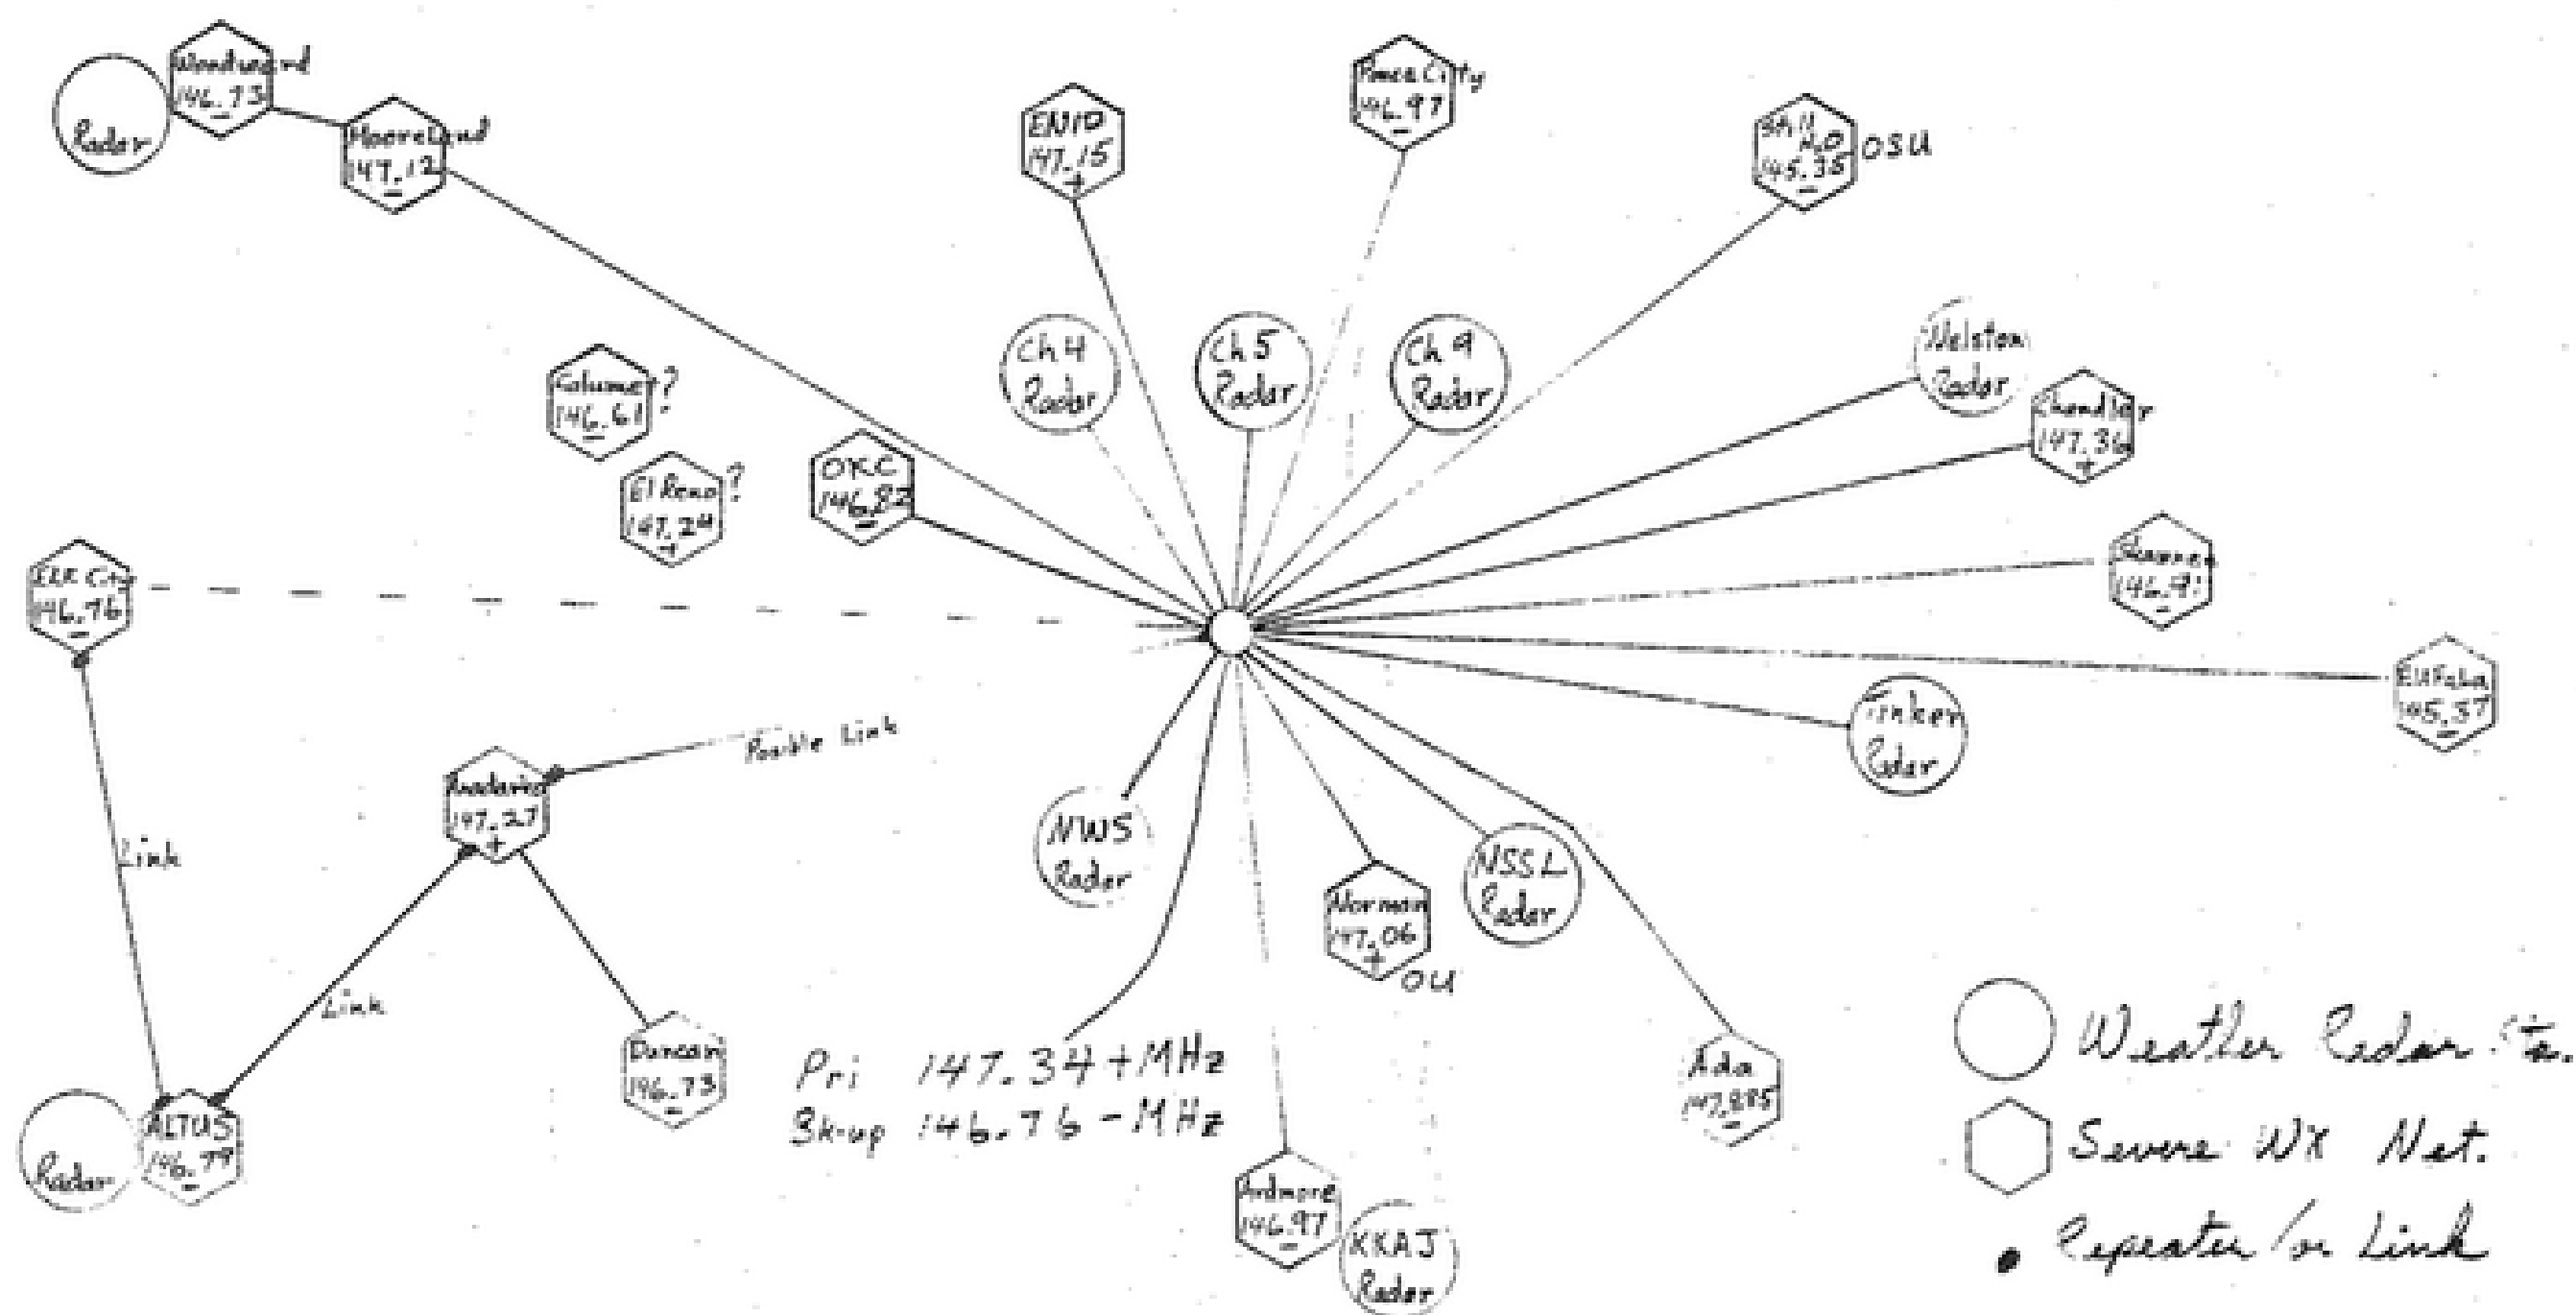 Woodward
146.73
-
Radar
Mooreland
147.12
-
ENID
147.15
+
Ponca City
146.97
-
Still
H2O
145.35
-
OSU
Ch 4
Radar
Ch 5
Radar
Ch 9
Radar
Welston
Radar
Chandler
147.36
+
Calumet ?
146.61
-
El Reno ?
147.24
+
OKC
146.82
-
Elk City
146.76
-
Shawnee
-
Eufaula
145.37
-
Tinker
Radar
Posible Link
Anadarko
147.27
+
Link
Link
NWS
Radar
Norman
147.06
+
OU
NSSL
Radar
Duncan
146.73
-
Pri 147.34 + MHz
Bk-up 146.76 - MHz
Ada
-
ALTUS
146.79
-
Radar
Ardmore
146.97
-
KKAJ
Radar
Weather Radar Sta.
Severe WX Net.
Repeater/or Link